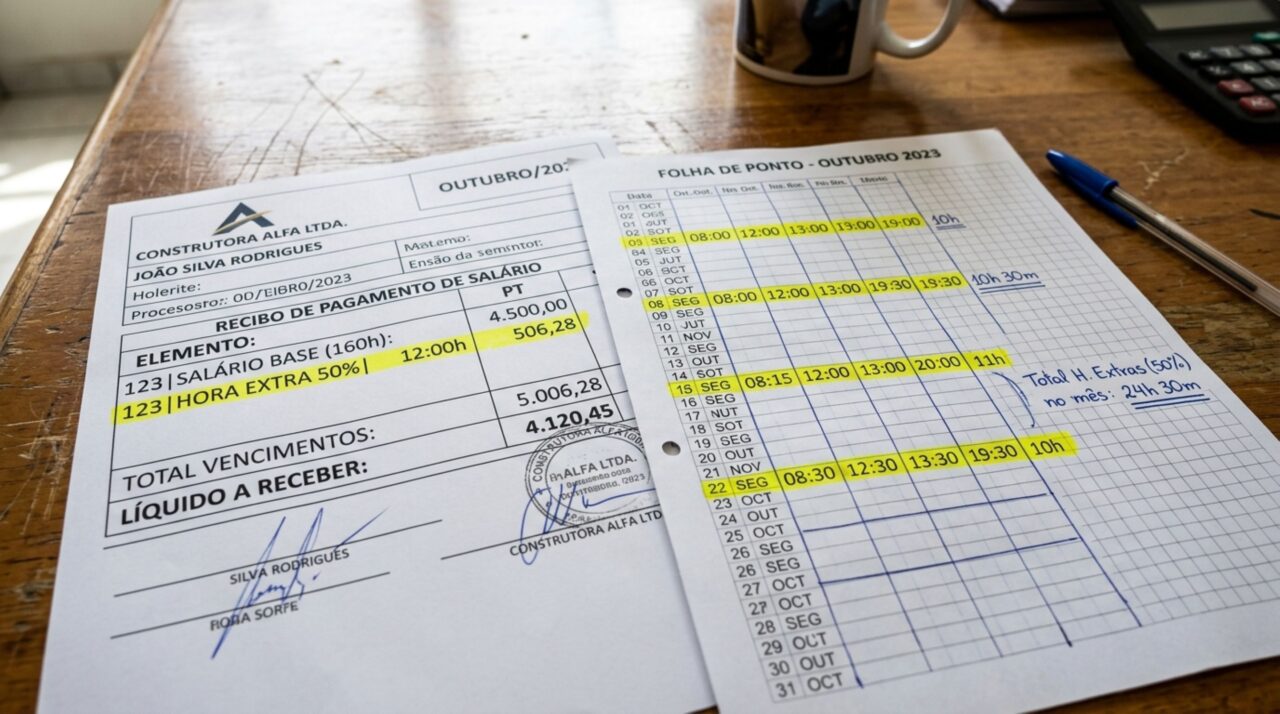 OUTUBRO/202
CONSTRUTORA ALFA LTDA.
JOÃO SILVA RODRIGUES
Holerite:
Processto: 00/EIBRO/2023
Matemo:
Ensão da semsntor:
RECIBO DE PAGAMENTO DE SALÁRIO
ELEMENTO: PT
123|SALÁRIO BASE (160h): 4.500,00
123|HORA EXTRA 50%| 12:00h 506,28
5.006,28
TOTAL VENCIMENTOS: 4.120,45
LÍQUIDO A RECEBER:
CONSTRUTORA ALFA
ALFA LTDA.
SILVA RODRIGUES
CONSTRUTORA ALFA LTD
RORA SORFE
FOLHA DE PONTO - OUTUBRO 2023
Data
01 OCT
02
01
02 SOT
03 SEG 08:00 12:00 13:00 19:00 19:00 10h
04 SEG
05 JUT
06 SCT
07 SOT
08 SEG 08:00 12:00 13:00 19:30 19:30 10h 30m
09 SEG
10 JUT
11 NOV
12 SEG
13 OUT
14 SOT
15 SEG 08:15 12:00 13:00 20:00 11h
16 SEG
17 NUT
18 SOT
19 SEG
20 OUT
21 NOV
22 SEG 08:30 12:30 13:30 19:30 10h
23 OCT
24 OUT
25 OCT
26 SEG
26 SEG
27 OCT
27 OCT
28 SEG
29 OUT
30 OUT
31 OCT
Total H. Extras (50%)
no mês: 24h 30m